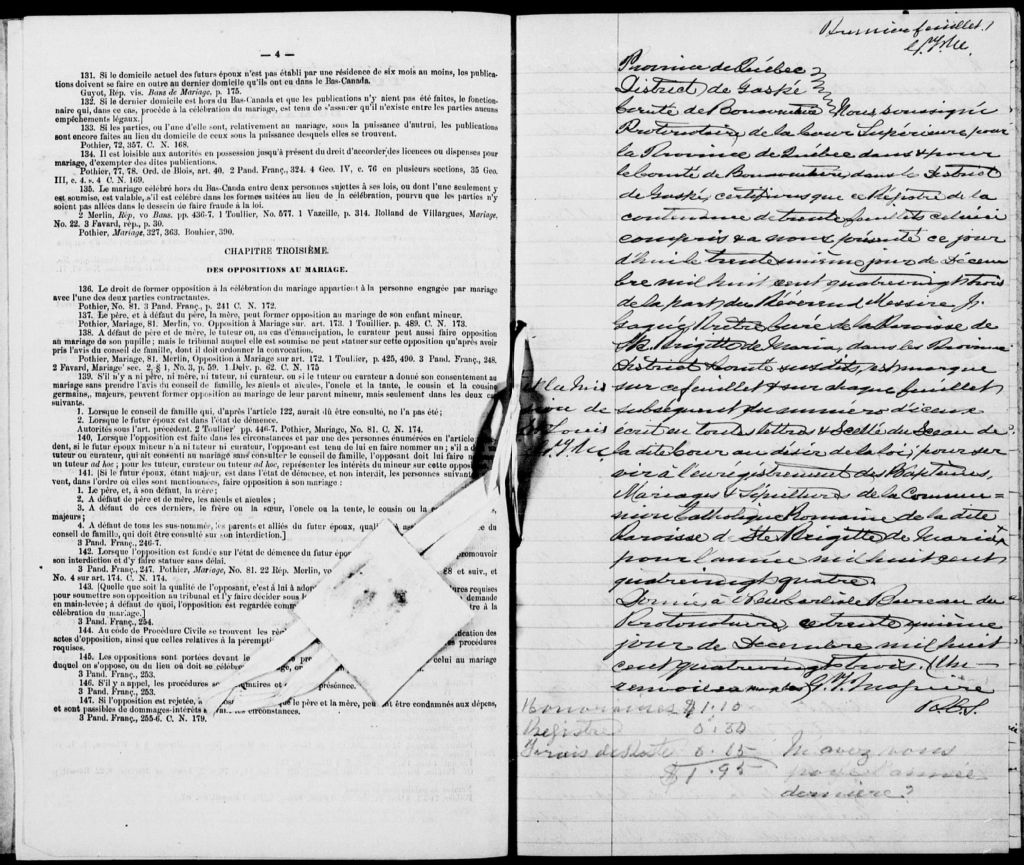 — 4 —
131. Si le domicile actuel des futurs époux n'est pas établi par une résidence de six mois au moins, les publica-
tions doivent se faire en outre au dernier domicile qu'ils ont eu dans le Bas-Canada.
Guyot, Rép. vis. Bans de Mariage, p. 175.
132. Si le dernier domicile est hors du Bas-Canada et que les publications n'y aient pas été faites, le fonction-
naire qui, dans ce cas, procède à la célébration du mariage, est tenu de s'assurer qu'il n'existe entre les parties aucun
empêchements légaux.]
133. Si les parties, ou l'une d'elle sont, relativement au mariage, sous la puissance d'autrui, les publications
sont encore faites au lieu du domicile de ceux sous la puissance desquels elles se trouvent.
Pothier, 72, 357. C. N. 168.
134. Il est loisible aux autorités en possession jusqu'à présent du droit d'accorder des licences ou dispenses pour
mariage, d'exempter des dites publications.
Pothier, 77, 78. Ord. de Blois, art. 40. 2 Pand. Franç., 324. 4 Geo. IV, c. 76 en plusieurs sections, 35 Geo.
III, c. 4. s. 4 C. N. 169.
135. Le mariage célébré hors du Bas-Canda entre deux personnes sujettes à ses lois, ou dont l'une seulement y
est soumise, est valable, s'il est célébré dans les formes usitées au lieu de la célébration, pourvu que les parties n'y
soient pas allées dans le dessein de faire fraude à la loi.
2 Merlin, Rép. vo Bans. pp. 436-7. 1 Toullier, No. 577. 1 Vazeille, p. 314. Rolland de Villargues, Mariage,
No. 22. 3 Favard, rép., p. 30.
Pothier, Mariage, 327, 363. Bouhier, 390.
CHAPITRE TROISIÈME.
DES OPPOSITIONS AU MARIAGE.
136. Le droit de former opposition à la célébration du mariage appartient à la personne engagée par mariage
avec l'une des deux parties contractantes.
Pothier, No. 81. 3 Pand. Franç., p. 241 C. N. 172.
137. Le père, et à défaut du père, la mère, peut former opposition au mariage de son enfant mineur.
Pothier, Mariage, 81. Merlin, vo. Opposition à Mariage sur. art. 173. 1 Touillier. p. 489. C. N. 173.
138. A défaut de père et de mère, le tuteur, ou, au cas d'émancipation, le curateur peut aussi faire opposition
au mariage de son pupille; mais le tribunal auquel elle est soumise ne peut statuer sur cette opposition qu'après avoir
pris l'avis du conseil de famille, dont il doit ordonner la convocation.
Pothier, Mariage, 81. Merlin, Opposition à Mariage sur art. 172. 1 Toullier, p. 425, 490. 3 Pand. Franç., 248.
2 Favard, Mariage sec. 2, § 1, No. 3, p. 59. 1 Delv. p. 62. C. N. 175
139. S'il n'y a ni père, ni mère, ni tuteur, ni curateur, ou si le tuteur ou curateur a donné son consentement au
mariage sans prendre l'avis du conseil de famille, les aïeuls et aïeules, l'oncle et la tante, le cousin et la cousine
germains, majeurs, peuvent former opposition au mariage de leur parent mineur, mais seulement dans les deux cas
suivants.
1. Lorsque le conseil de famille qui, d'après l'article 122, aurait dû être consulté, ne l'a pas été;
2. Lorsque le futur époux est dans l'état de démence.
Autorités sous l'art. précédent. 2 Toullier pp. 446-7. Pothier, Mariage, No. 81. C. N. 174.
140. Lorsque l'opposition est faite dans les circonstances et par une des personnes énumérées en l'article
dent, si le futur époux mineur n'a ni tuteur ni curateur, l'opposant est tenu de lui en faire nommer un; s'il a
tuteur ou curateur, qui ait consenti au mariage sans consulter le conseil de famille, l'opposant doit lui faire
un tuteur ad hoc; pour les tuteur, curateur ou tuteur ad hoc, représenter les intérêts du mineur sur cette
141. Si le futur époux, étant majeur, est dans l'état de démence, et non interdit, les personnes
vent, dans l'ordre où elles sont mentionnées, faire opposition à son mariage:
1. Le père, et, à son défaut, la mère;
2. A défaut de père et de mère, les aïeuls et aïeules;
3. A défaut de ces derniers, le frère ou la sœur, l'oncle ou la tante, le cousin ou la
majeurs;
4. A défaut de tous les sus-nommés, les parents et alliés du futur époux, du
conseil de famille, qui doit être consulté sur son interdiction.]
3 Pand. Franç., 246-7.
142. Lorsque l'opposition est fondée sur l'état de démence du futur promouvoir
son interdiction et d'y faire statuer sans délai.
3 Pand. Franç., 247. Pothier, Mariage, No. 81. 22 Rép. Merlin, vo 28 et suiv., et
No. 4 sur art. 174. C. N. 174.
143. [Quelle que soit la qualité de l'opposant, c'est à lui à requises
pour soumettre son opposition au tribunal et l'y faire décider sous demande
en main-levée; à défaut de quoi, l'opposition est regardée comme à la
célébration du mariage.]
3 Pand. Franç., 254.
144. Au code de Procédure Civile se trouvent les des
actes d'opposition, ainsi que celles relatives à la procédures
requises.
145. Les oppositions sont portées devant le celui au mariage
duquel on s'oppose, ou du lieu où doit se
3 Pand. Franç., 253.
146. S'il y a appel, les procédures préséance.
3 Pand. Franç., 253.
147. Si l'opposition est rejetée, que le père et la mère, être condamnés aux dépens,
et sont passibles de dommages-intérêts circonstances.
3 Pand. Franç., 255-6. C. N. 179.
feuillet
Province de Québec
District de Gaspé
Comté de Bonaventure Nous soussigné
Protonotaire de la Cour Supérieure, pour
la Province de Québec dans & pour
le comté de Bonaventure, dans le District
de Gaspé, certifions que ce Régistre de la
contenance de trente feuillets celui-ci
compris & a nous présenté ce jour
d'hui le trente unième jour de Décem
bre mil huit cent quatrevingt trois
de la part du Révérend Messire J.
Gagné Prêtre Curé de la Paroisse de
Ste Brigitte de Maria, dans les Province
District & Comté susdits, est marqué
sur ce feuillet & sur chaque feuillet
et la Mis
sion de
St Louis
subséquent du numéro d'iceux
écrit en toutes lettres & scellé du Sceau de
la dite Cour au désir de la loi, pour ser
vir à l'enrégistrement des Baptemes,
Mariages & Sépultures de la Commu=
nion Catholique Romaine de la dite
Paroisse d Ste Brigitte de Maria
pour l'année mil huit cent
quatrevingt quatre.
Donné à New Carlisle Bureau du
Protonotaire, ce trente unième
jour de Décembre mil huit
cent quatrevingt trois. (Un
renvoi
Honoraires $1.10
Registre 0.80
Frais de Poste 0.15
$1.95
N'avez vous
payé l'année
dernière?